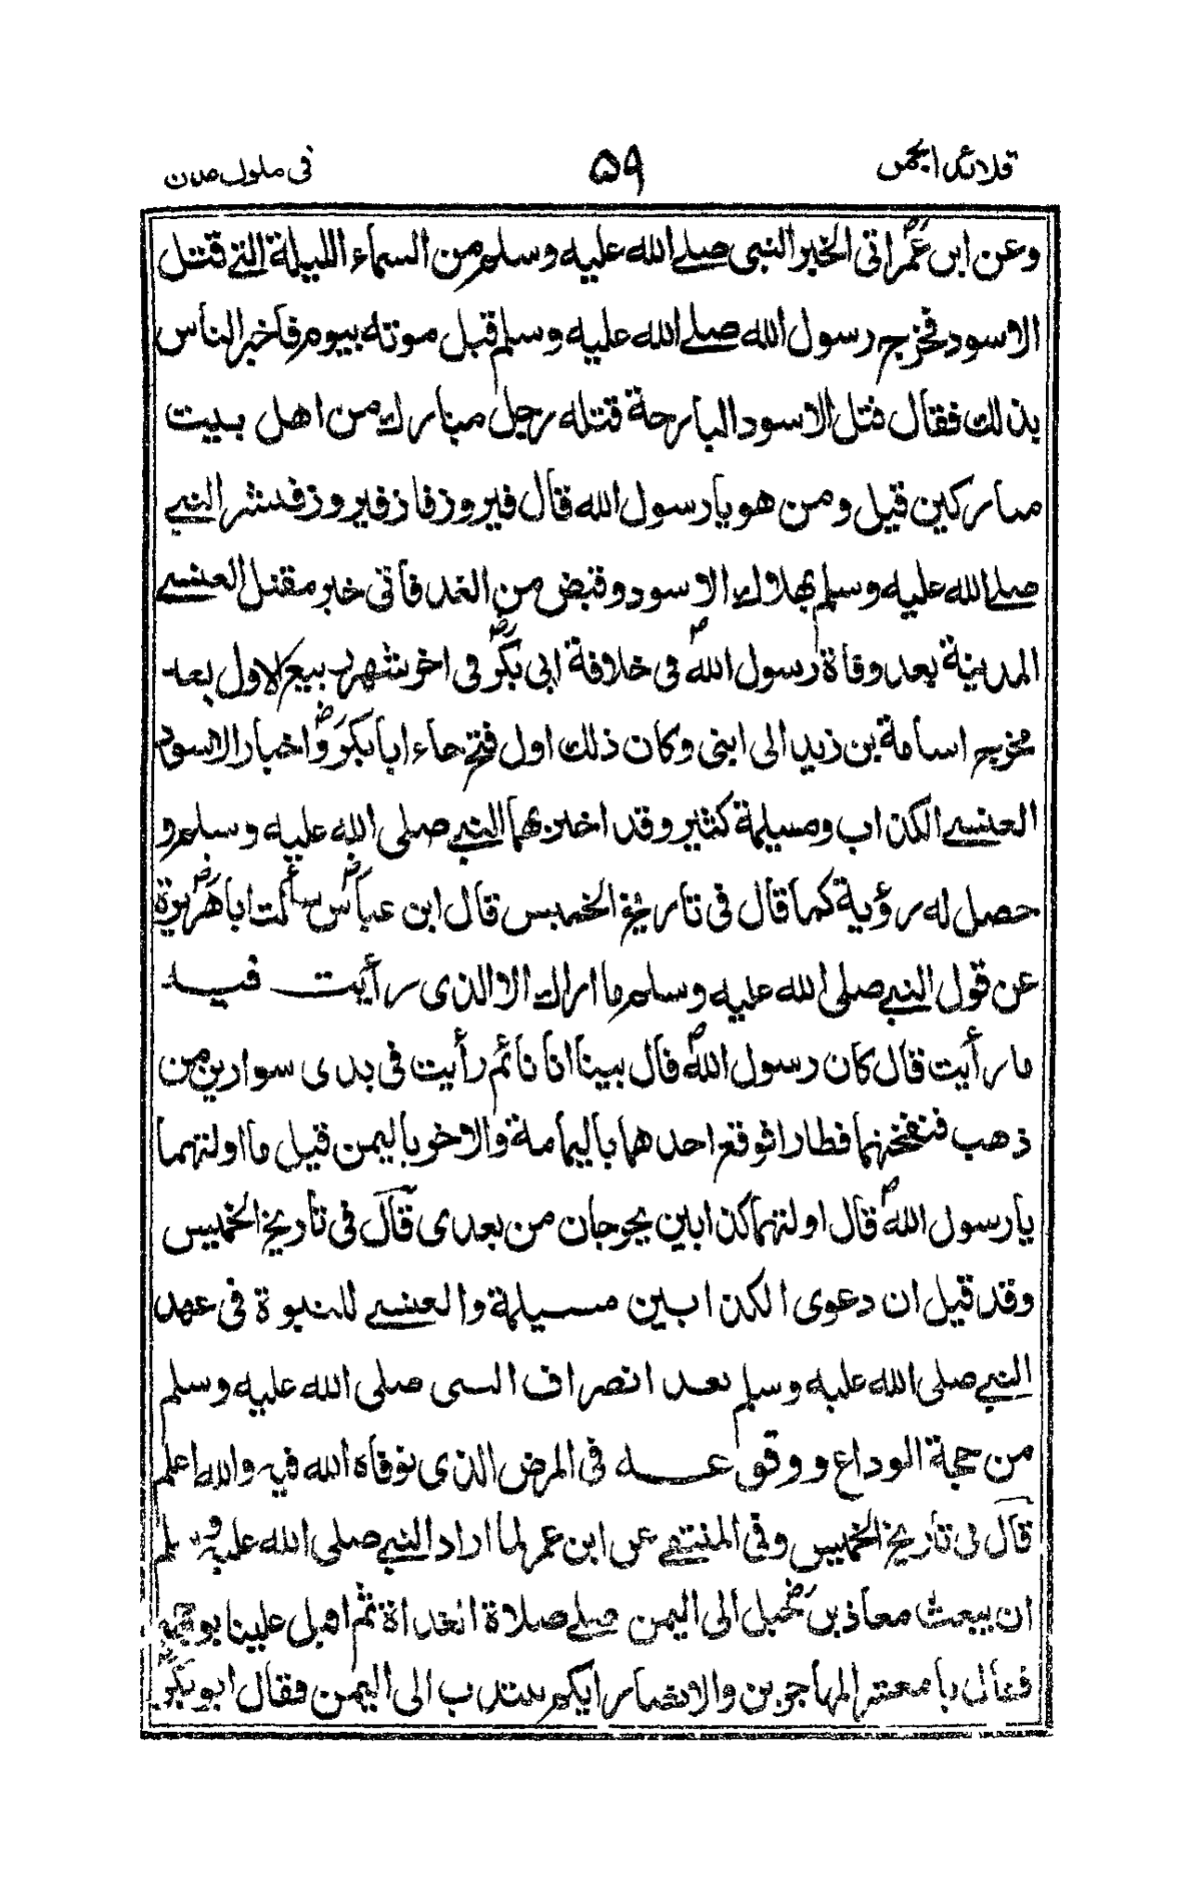 قلائد الجمن ٥٩ في ملوك عدن
وعن ابن عمرؓ اتى الخبر النبي صلى الله عليه وسلم من السماء الليلة التي قتل
الاسود فخرج رسول الله صلى الله عليه وسلم قبل موته بيوم فأخبر الناس
بذلك فقال قتل الاسود البارحة قتله رجل مبارك من اهل بيت
مباركين قيل ومن هو يا رسول الله قال فيروز فاز فيروز فبشر النبي
صلى الله عليه وسلم بهلاك الاسود وقبض من الغد فأتى خبر مقتل العنسي
المدينة بعد وفاة رسول اللهؐ في خلافة ابي بكرؓ في اخر شهر ربيع الاول بعد
مخرج اسامة بن زيد الى ابنى وكان ذلك اول فتح جاء ابا بكرؓ واخبار الاسود
العنسي الكذاب ومسيلمة كثير وقد اخبر بهما النبي صلى الله عليه وسلم و
حصل له رؤية كما قال في تاريخ الخميس قال ابن عباسؓ سألت ابا هريرةؓ
عن قول النبي صلى الله عليه وسلم ما اراك الا الذي رأيت فيه
ما رأيت قال كان رسول اللهؐ قال بينا انا نائم رأيت في يدي سوارين من
ذهب فنفختهما فطارا فوقع احدهما باليمامة والاخر باليمن قيل ما اولتهما
يا رسول اللهؐ قال اولتهما كذابين يخرجان من بعدي قال في تأريخ الخميس
وقد قيل ان دعوى الكذابين مسيلمة والعنسي للنبوة في عهد
النبي صلى الله عليه وسلم بعد انصراف النبي صلى الله عليه وسلم
من حجة الوداع ووقوعه في المرض الذي توفاه الله فيه والله اعلم
قال في تأريخ الخميس وفي المنتقى عن ابن عمر لما اراد النبي صلى الله عليه وسلم
ان يبعث معاذ بن جبلؓ الى اليمن صلى صلاة الغداة ثم اقبل علينا بوجهه
فقال يا معشر المهاجرين والانصار ايكم ينتدب الى اليمن فقال ابو بكرؓ